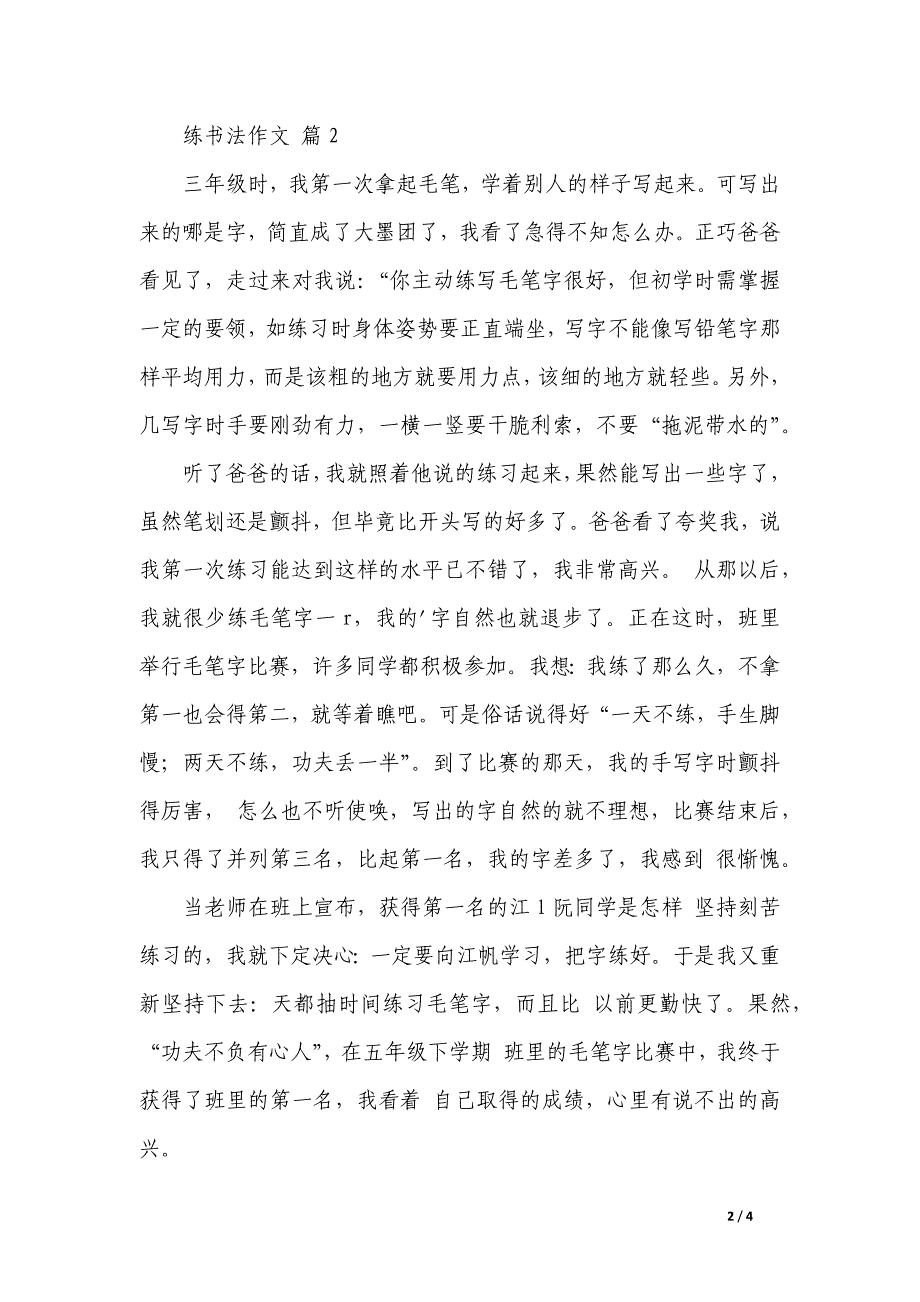 练书法作文 篇2
三年级时，我第一次拿起毛笔，学着别人的样子写起来。可写出
来的哪是字，简直成了大墨团了，我看了急得不知怎么办。正巧爸爸
看见了，走过来对我说：“你主动练写毛笔字很好，但初学时需掌握
一定的要领，如练习时身体姿势要正直端坐，写字不能像写铅笔字那
样平均用力，而是该粗的地方就要用力点，该细的地方就轻些。另外，
几写字时手要刚劲有力，一横一竖要干脆利索，不要“拖泥带水的”。
听了爸爸的话，我就照着他说的练习起来，果然能写出一些字了，
虽然笔划还是颤抖，但毕竟比开头写的好多了。爸爸看了夸奖我，说
我第一次练习能达到这样的水平已不错了，我非常高兴。 从那以后，
我就很少练毛笔字一r，我的′字自然也就退步了。正在这时，班里
举行毛笔字比赛，许多同学都积极参加。我想：我练了那么久，不拿
第一也会得第二，就等着瞧吧。可是俗话说得好“一天不练，手生脚
慢；两天不练，功夫丢一半”。到了比赛的那天，我的手写字时颤抖
得厉害， 怎么也不听使唤，写出的字自然的就不理想，比赛结束后，
我只得了并列第三名，比起第一名，我的字差多了，我感到 很惭愧。
当老师在班上宣布，获得第一名的江1阮同学是怎样 坚持刻苦
练习的，我就下定决心：一定要向江帆学习，把字练好。于是我又重
新坚持下去：天都抽时间练习毛笔字，而且比 以前更勤快了。果然，
“功夫不负有心人”，在五年级下学期 班里的毛笔字比赛中，我终于
获得了班里的第一名，我看着 自己取得的成绩，心里有说不出的高
兴。
2 / 4